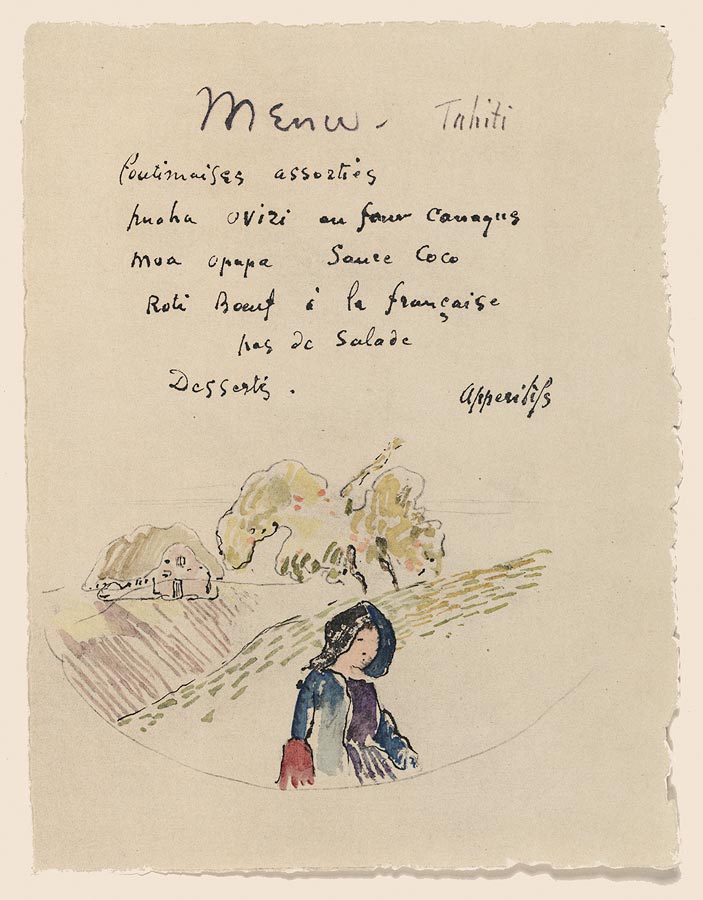 Menu. Tahiti
assorties
puaha oviri au four Canaque
moa opapa Sauce Coco
Roti Bœuf à la française
pas de Salade
Desserts. Apperitifs